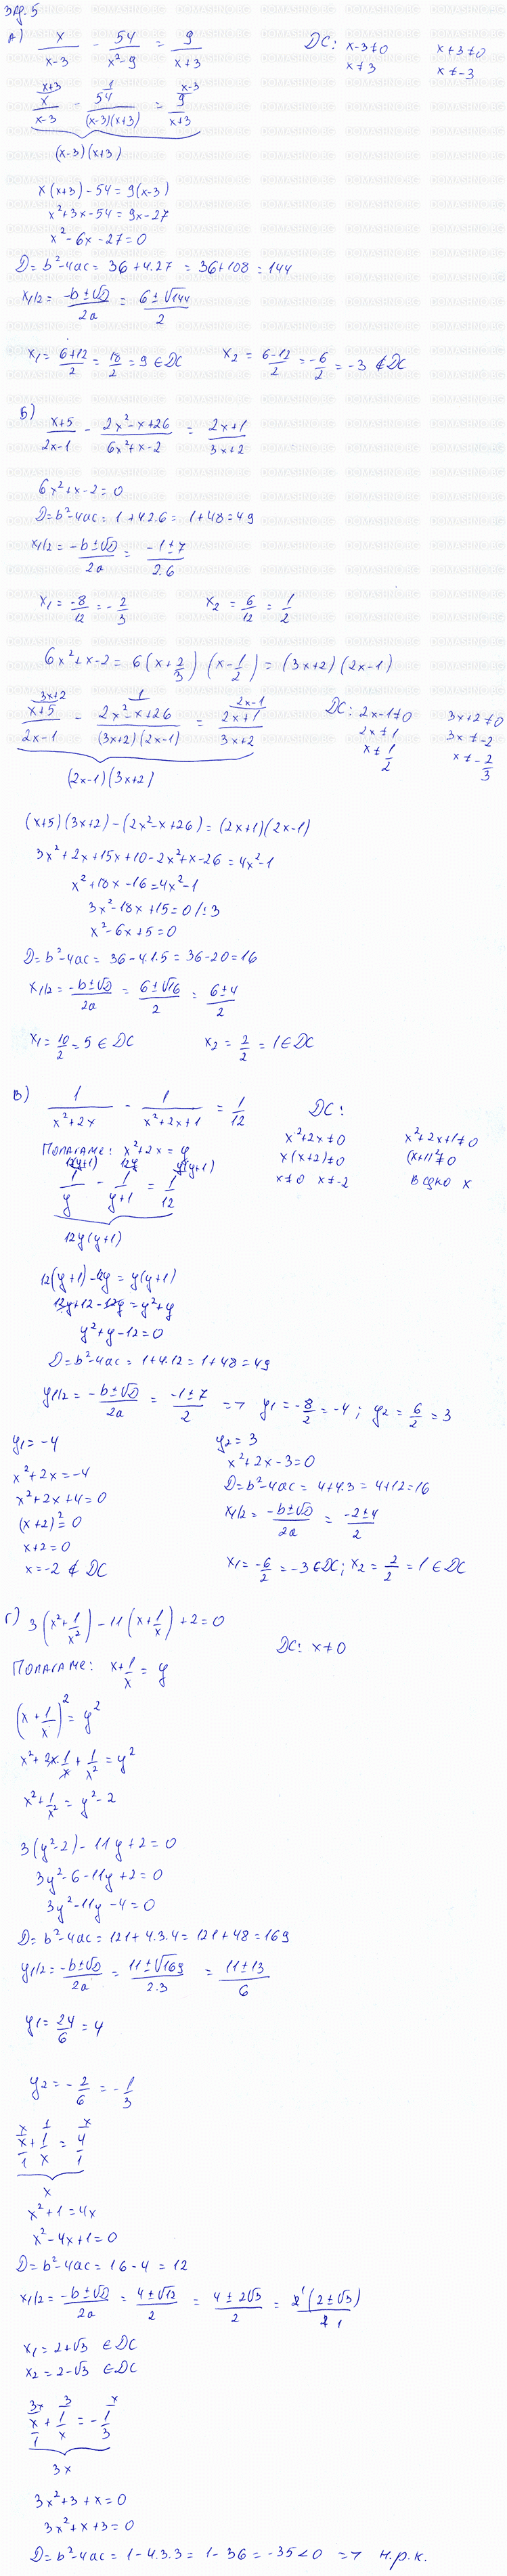 Зад. 5
а) x/(x-3) - 54/(x²-9) = 9/(x+3)
ДС: x-3≠0 x+3≠0
x≠3 x≠-3
x+3 1 x-3
x/(x-3) - 54/((x-3)(x+3)) = 9/(x+3)
(x-3)(x+3)
x(x+3)-54=9(x-3)
x²+3x-54=9x-27
x²-6x-27=0
D=b²-4ac=36+4.27=36+108=144
x1/2=(-b±√D)/2a=(6±√144)/2
x₁=(6+12)/2=18/2=9∈ДС x₂=(6-12)/2=-6/2=-3∉ДС
б) (x+5)/(2x-1) - (2x²-x+26)/(6x²+x-2) = (2x+1)/(3x+2)
6x²+x-2=0
D=b²-4ac=1+4.2.6=1+48=49
x1/2=(-b±√D)/2a=(-1±7)/2.6
x₁=-8/12=-2/3 x₂=6/12=1/2
6x²+x-2=6(x+2/3)(x-1/2)=(3x+2)(2x-1)
3x+2 1 2x-1
(x+5)/(2x-1) - (2x²-x+26)/((3x+2)(2x-1)) = (2x+1)/(3x+2)
(2x-1)(3x+2)
ДС: 2x-1≠0 3x+2≠0
2x≠1 3x≠-2
x≠1/2 x≠-2/3
(x+5)(3x+2)-(2x²-x+26)=(2x+1)(2x-1)
3x²+2x+15x+10-2x²+x-26=4x²-1
x²+18x-16=4x²-1
3x²-18x+15=0/:3
x²-6x+5=0
D=b²-4ac=36-4.1.5=36-20=16
x1/2=(-b±√D)/2a=(6±√16)/2=(6±4)/2
x₁=10/2=5∈ДС x₂=2/2=1∈ДС
в) 1/(x²+2x) - 1/(x²+2x+1) = 1/12
ДС:
x²+2x≠0 x²+2x+1≠0
x(x+2)≠0 (x+1)²≠0
x≠0 x≠-2 всяко x
Полагаме: x²+2x=y
12(y+1) 12y y(y+1)
1/y - 1/(y+1) = 1/12
12y(y+1)
12(y+1)-12y=y(y+1)
12y+12-12y=y²+y
y²+y-12=0
D=b²-4ac=1+4.12=1+48=49
y1/2=(-b±√D)/2a=(-1±7)/2 => y₁=-8/2=-4; y₂=6/2=3
y₁=-4
x²+2x=-4
x²+2x+4=0
(x+2)²=0
x+2=0
x=-2∉ДС
y₂=3
x²+2x-3=0
D=b²-4ac=4+4.3=4+12=16
x1/2=(-b±√D)/2a=(-2±4)/2
x₁=-6/2=-3∈ДС; x₂=2/2=1∈ДС
г) 3(x²+1/x²)-11(x+1/x)+2=0
ДС: x≠0
Полагаме: x+1/x=y
(x+1/x)²=y²
x²+2x.1/x+1/x²=y²
x²+1/x²=y²-2
3(y²-2)-11y+2=0
3y²-6-11y+2=0
3y²-11y-4=0
D=b²-4ac=121+4.3.4=121+48=169
y1/2=(-b±√D)/2a=(11±√169)/2.3=(11±13)/6
y₁=24/6=4
y₂=-2/6=-1/3
x 1 x
x/1+1/x=4/1
x
x²+1=4x
x²-4x+1=0
D=b²-4ac=16-4=12
x1/2=(-b±√D)/2a=(4±√12)/2=(4±2√3)/2=2¹(2±√3)/2 1
x₁=2+√3 ∈ДС
x₂=2-√3 ∈ДС
3x 3 x
x/1+1/x=-1/3
3x
3x²+3+x=0
3x²+x+3=0
D=b²-4ac=1-4.3.3=1-36=-35<0 => н.р.к.